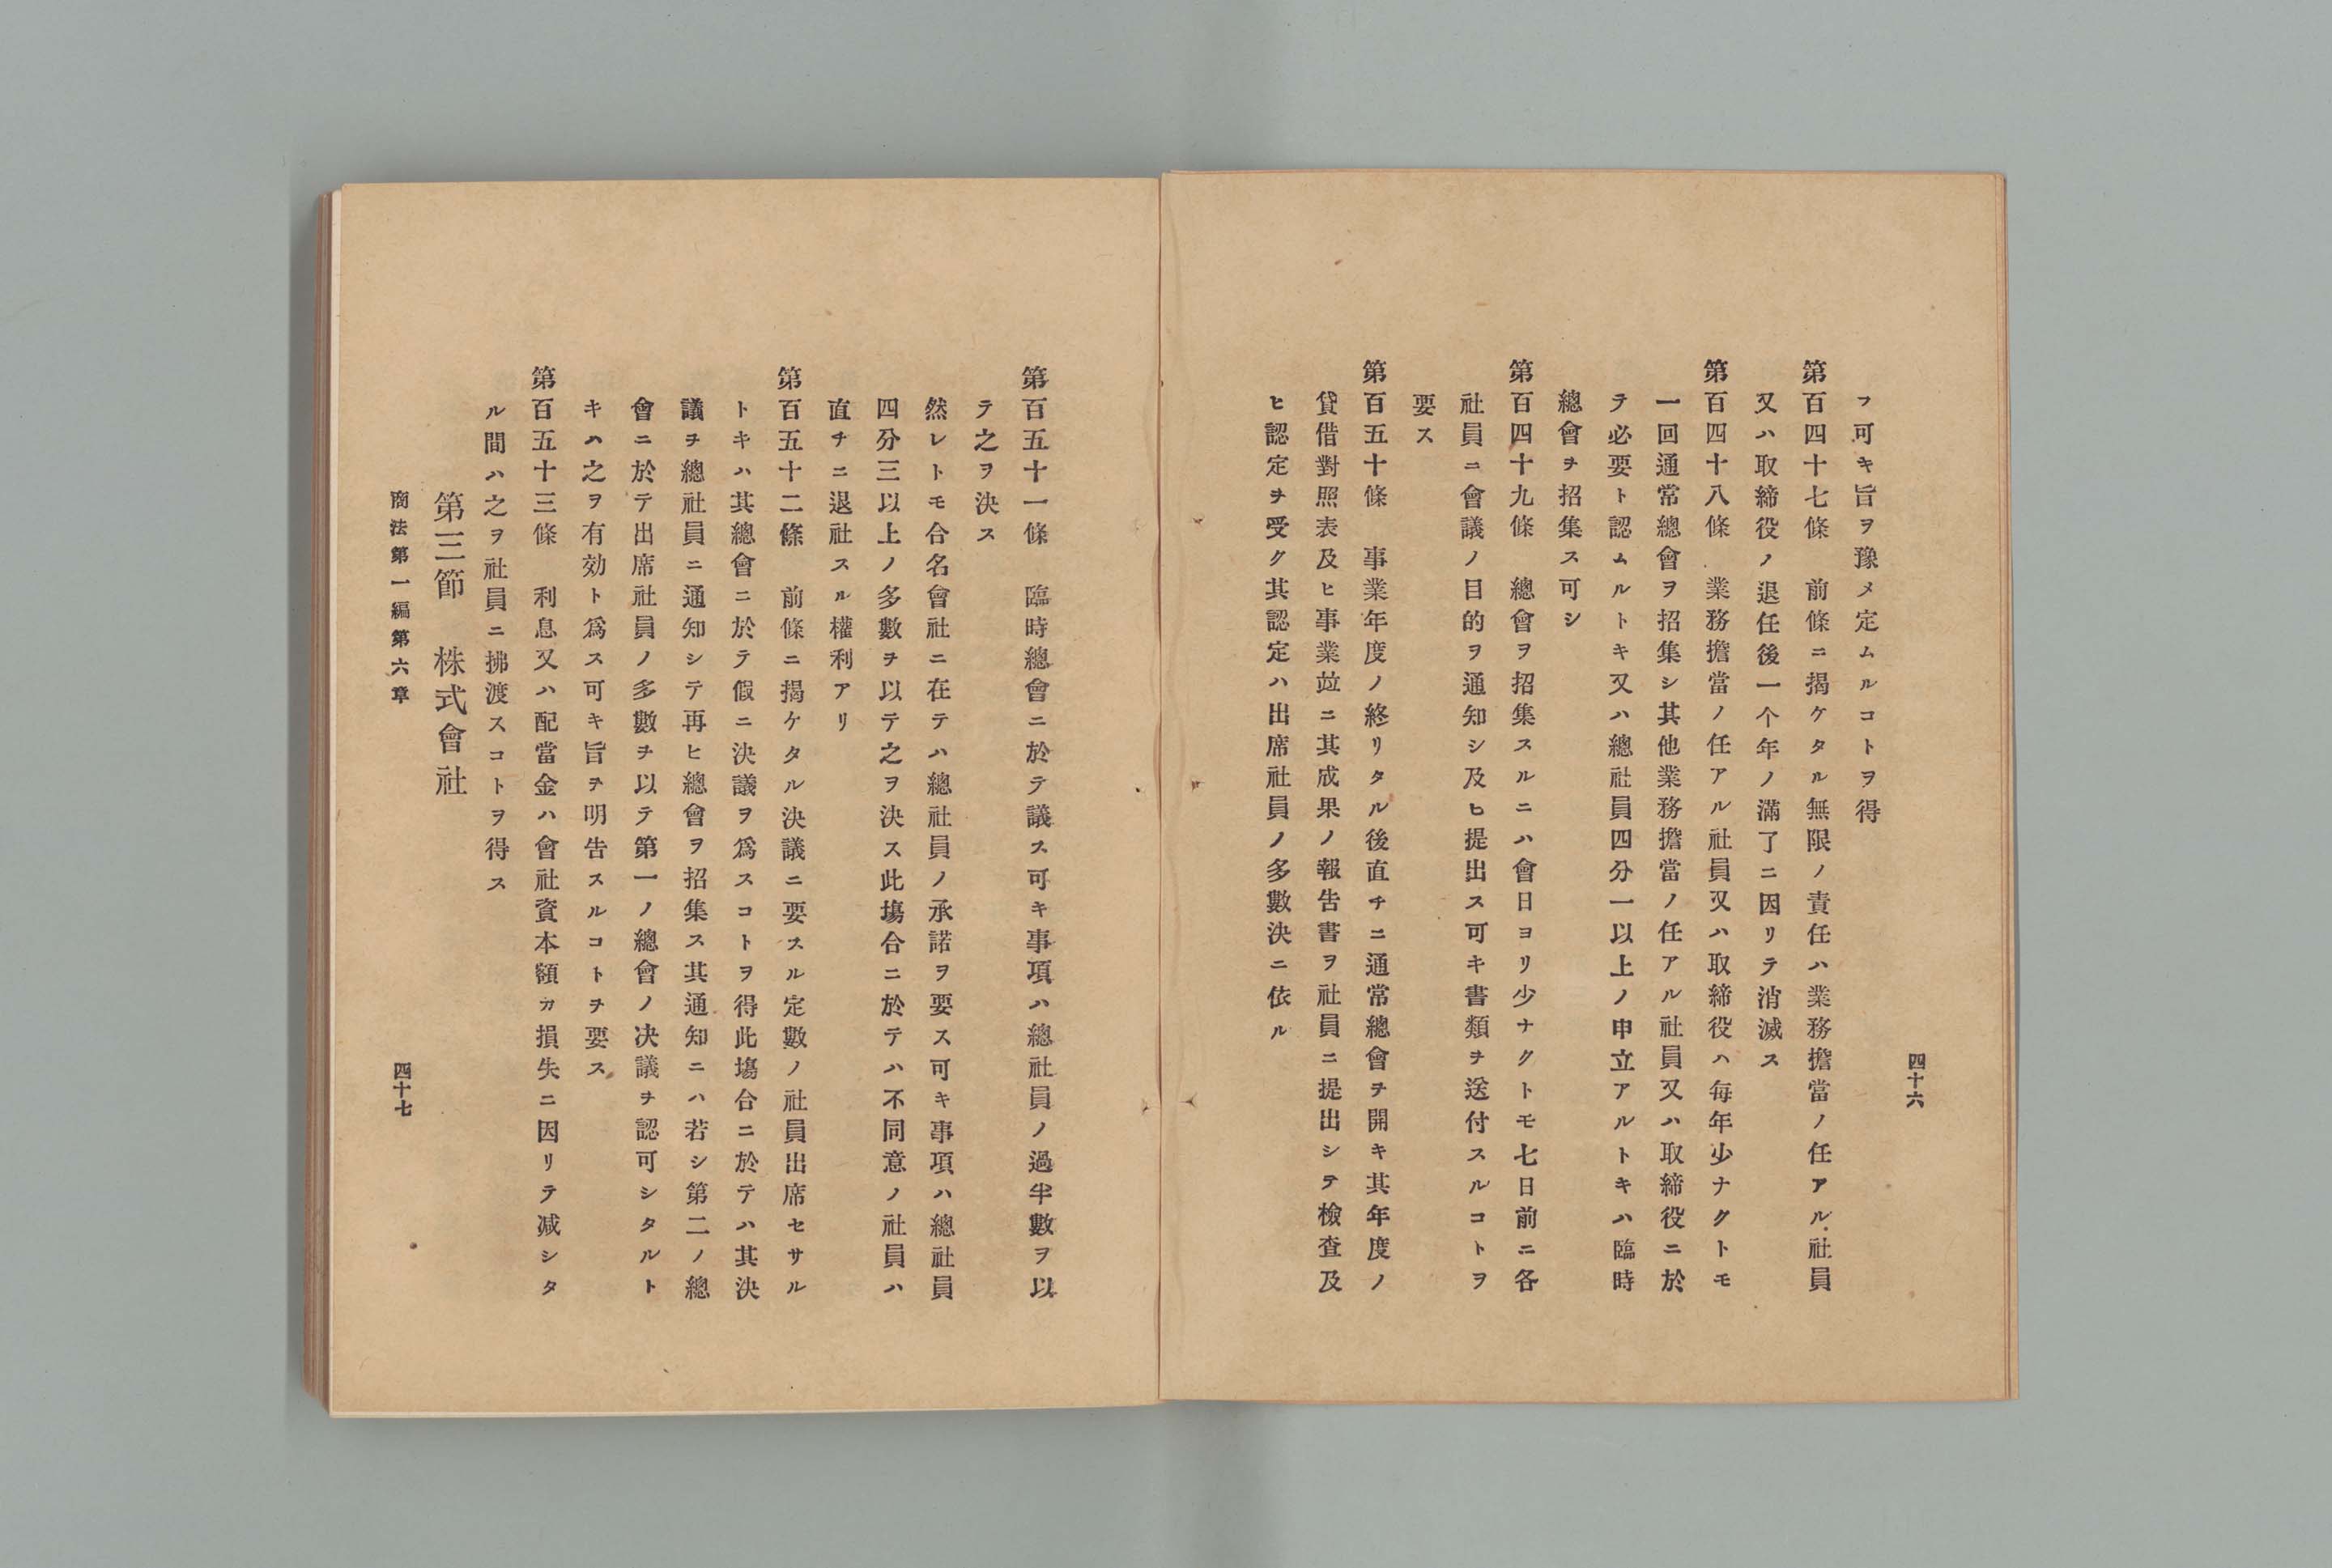 フ可キ旨ヲ豫メ定ムルコトヲ得
第百四十七條　前條ニ揭ケタル無限ノ責任ハ業務擔當ノ任アル社員
又ハ取締役ノ退任後一个年ノ滿了ニ因リテ消滅ス
第百四十八條　業務擔當ノ任アル社員又ハ取締役ハ每年少ナクトモ
一回通常總會ヲ招集シ其他業務擔當ノ任アル社員又ハ取締役ニ於
テ必要ト認ムルトキ又ハ總社員四分一以上ノ申立アルトキハ臨時
總會ヲ招集ス可シ
第百四十九條　總會ヲ招集スルニハ會日ヨリ少ナクトモ七日前ニ各
社員ニ會議ノ目的ヲ通知シ及ヒ提出ス可キ書類ヲ送付スルコトヲ
要ス
第百五十條　事業年度ノ終リタル後直チニ通常總會ヲ開キ其年度ノ
貸借對照表及ヒ事業竝ニ其成果ノ報吿書ヲ社員ニ提出シテ檢查及
ヒ認定ヲ受ク其認定ハ出席社員ノ多數決ニ依ル
四十六
第百五十一條　臨時總會ニ於テ議ス可キ事項ハ總社員ノ過半數ヲ以
テ之ヲ決ス
然レトモ合名會社ニ在テハ總社員ノ承諾ヲ要ス可キ事項ハ總社員
四分三以上ノ多數ヲ以テ之ヲ決ス此塲合ニ於テハ不同意ノ社員ハ
直チニ退社スル權利アリ
第百五十二條　前條ニ揭ケタル決議ニ要スル定數ノ社員出席セサル
トキハ其總會ニ於テ假ニ決議ヲ爲スコトヲ得此塲合ニ於テハ其決
議ヲ總社員ニ通知シテ再ヒ總會ヲ招集ス其通知ニハ若シ第二ノ總
會ニ於テ出席社員ノ多數ヲ以テ第一ノ總會ノ決議ヲ認可シタルト
キハ之ヲ有効ト爲ス可キ旨ヲ明吿スルコトヲ要ス
第百五十三條　利息又ハ配當金ハ會社資本額カ損失ニ因リテ减シタ
ル間ハ之ヲ社員ニ拂渡スコトヲ得ス
第三節　株式會社
商法第一編第六章
四十七